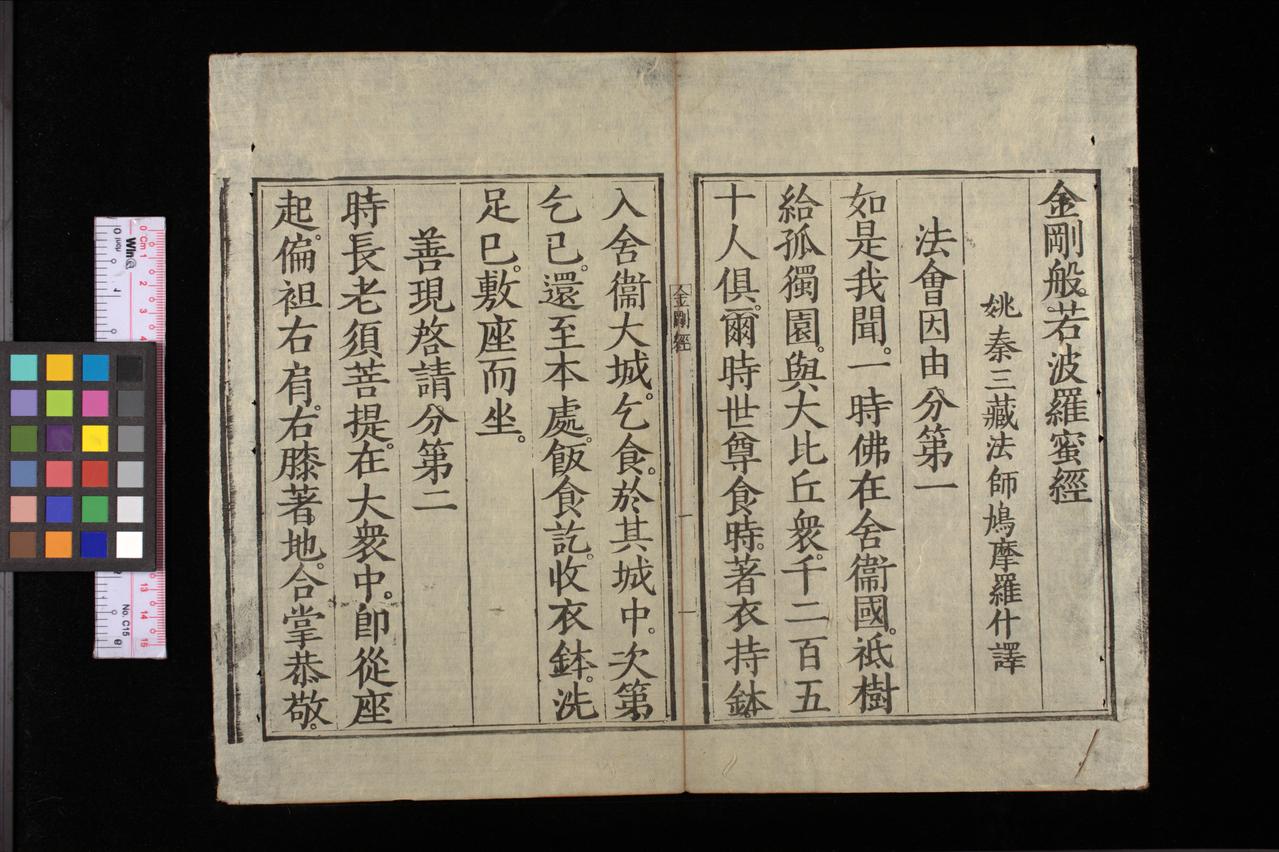 金剛般若波羅蜜經
姚秦三藏法師鳩摩羅什譯
法會因由分第一
如是我聞。一時佛在舍衞國。祇樹
給孤獨園。與大比丘衆。千二百五
十人俱。爾時世尊食時。著衣持鉢。
入舍衞大城。乞食。於其城中。次第
乞已。還至本處。飯食訖。收衣鉢。洗
足已。敷座而坐。
善現啓請分第二
時長老須菩提。在大衆中。卽從座
起。偏袒右肩。右膝著地。合掌恭敬。
金剛經
一
一
0 Cm 1
No. C15